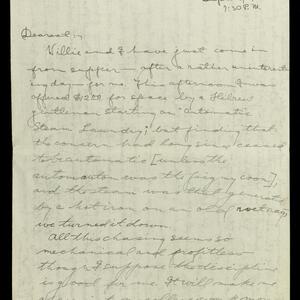 7:30 P.M.
Dearest:
Willie and I have just come in
from supper — after a rather uninteresting
day — for me. This afternoon I was
offered $1200 for space by a Hebrew
gentleman starting an "automatic
Steam Laundry", but finding that
the concern had long since ceased
to be automatic [unless the
automaton was the
and the steam was that generated
by a hot iron on an old wet rag,
we turned it down.
All this chasing seems so
mechanical and profitless
though I suppose the discipline
is good for me. It will make me